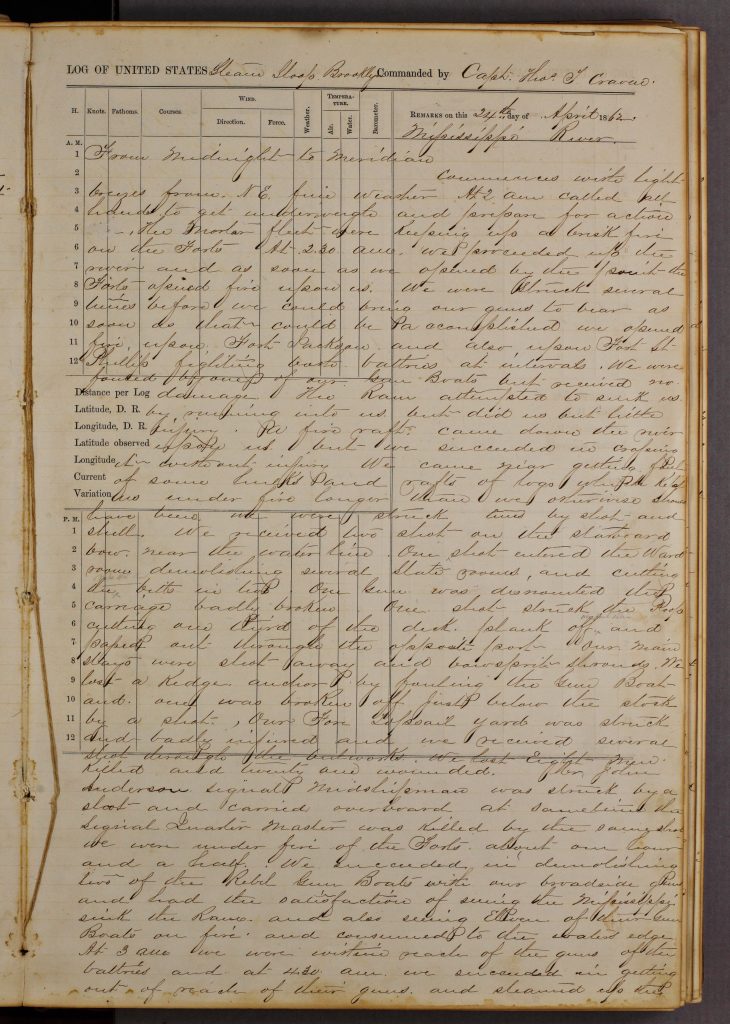 LOG OF UNITED STATES Steam Sloop Brooklyn Commanded by Capt. Thos. T Craven.
H. Knots. Fathoms. Courses. WIND. Direction. Force. Weather. TEMPERATURE. Air. Water. Barometer. REMARKS on this 24th day of April 1862.
Mississippi River.
A. M.
1 From Midnight to Meridian
2 Commences with light
3 breezes from N.E. fine weather At 2 am called all
4 hands to get underweigh and prepare for action
5 The Mortar fleet were keeping up a brisk fire
6 on the Forts At 2.30 am. we proceeded up the
7 river and as soon as we opened by the point the
8 Forts opened fire upon us. We were struck several
9 times before we could bring our guns to bear as
10 soon as that could be accomplished we opened
11 fire upon Fort Jackson and also upon Fort St
12 Phillip fighting both batteries at intervals. We were
fouled by one of our Gun Boats but received no
Distance per Log damage The Ram attempted to sink us
Latitude, D. R. by running into us but did us but little
Longitude, D. R. injury A fire raft came down the river
Latitude observed us but we succeeded in
Longitude it without injury We came near getting
Current of some hulks and rafts of logs
Variation us under fire longer than we otherwise should
have been we were struck times by shot and
P. M.
1 shell. We received two shot on the starboard
2 bow near the water line. One shot entered the Ward
3 room demolishing several State rooms, and cutting
4 the bitts in two One Gun was dismounted the
5 carriage badly broken One shot struck the Poop
6 cutting one third of the deck plank off and
7 passed out through the opposite port Our main
8 stays were shot away and bowsprit shrouds. We
9 lost a Kedge anchor by fouling the Gun Boat
10 and one was broken off just below the stock
11 by a shot. Our Fore Topsail yard was struck
12 and badly injured and we received several
shot through the bulwarks. We lost Eight men
killed and twenty one wounded. Mr John
Anderson signal Midshipman was struck by a
shot and carried overboard at sametime the
Signal Quarter Master was killed by the same shot
we were under fire of the Forts about one hour
and a half. We succeeded in demolishing
two of the Rebel Gun Boats with our broadside guns
and had the satisfaction of seeing the Mississippi
sink the Ram. and also seeing Eleven of their Gun
Boats on fire and consumed to the waters edge
At 3 am we were within reach of the guns of the
batteries and at 4.30 am. we succeeded in getting
out of reach of their guns. and steamed up the